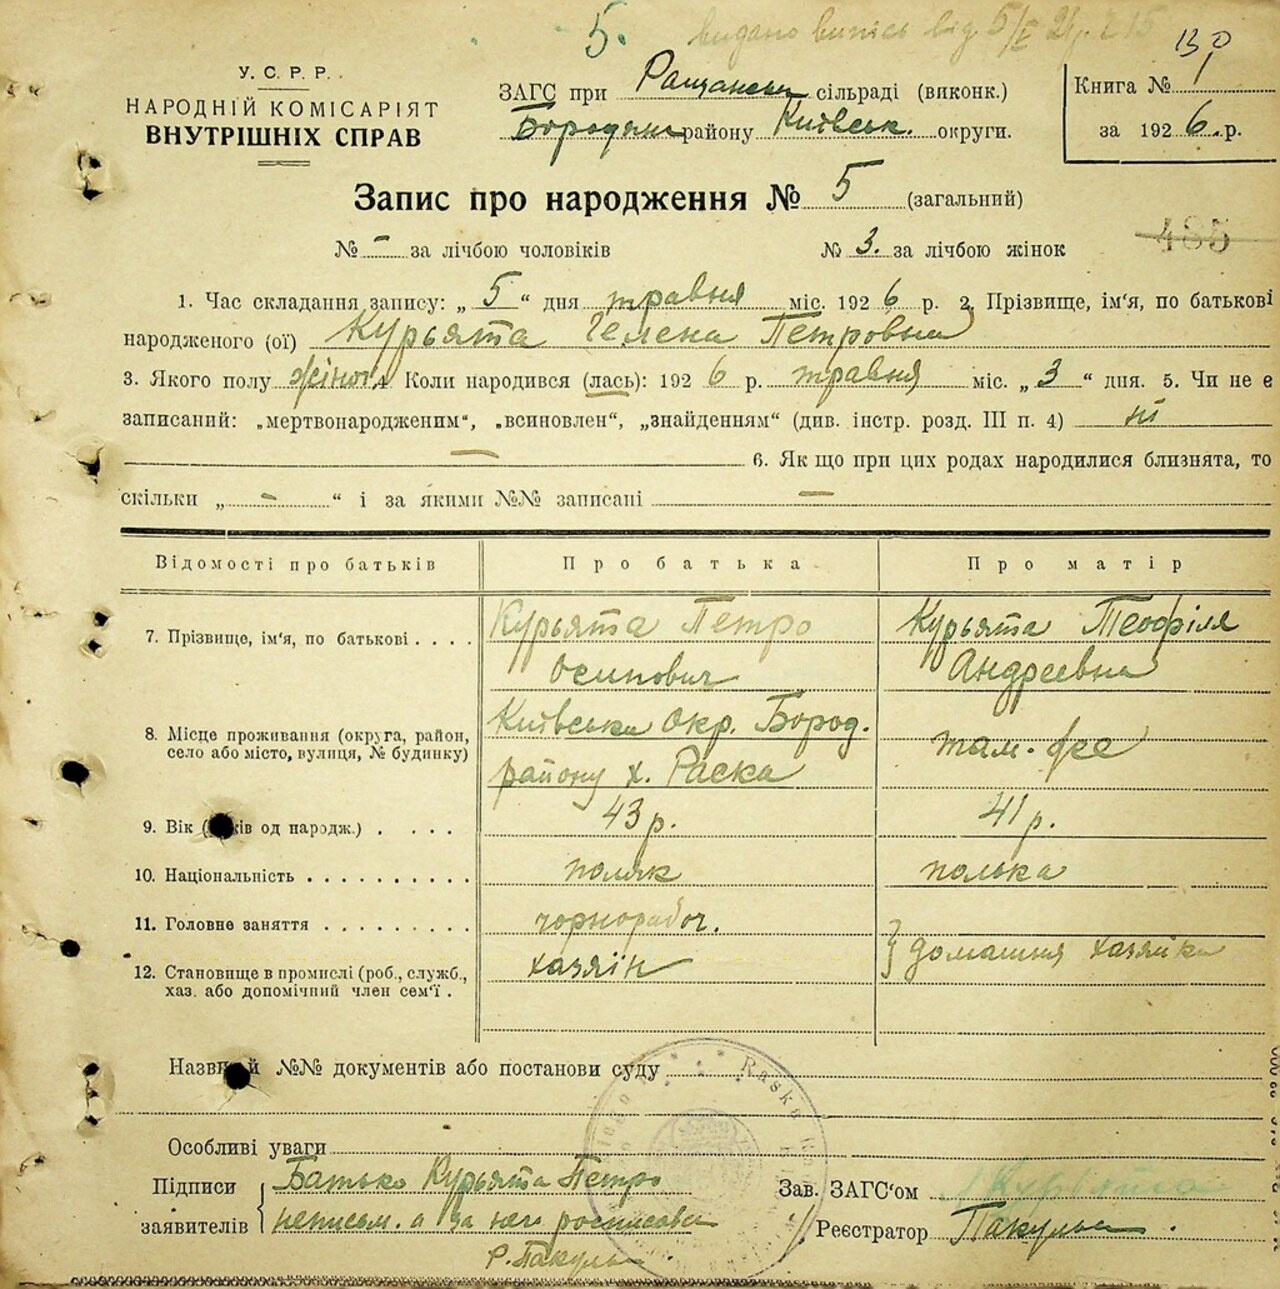 5. видано випись від 5/I
У. С. Р. Р.
НАРОДНІЙ КОМІСАРІЯТ
ВНУТРІШНІХ СПРАВ
ЗАГС при Ращанськ сільраді (виконк.)
Бородян району Київськ. округи.
Книга № 1
за 1926.р.
Запис про народження № 5 (загальний)
№ – за лічбою чоловіків № 3. за лічбою жінок
485
1. Час складання запису: „ 5 “ дня травня міс. 1926 р. 2. Прізвище, ім'я, по батькові
народженого (ої) Курьята Гелена Петровна
3. Якого полу жіноч. 4. Коли народився (лась): 1926 р. травня міс. „ 3 “ дня. 5. Чи не є
записаний: „мертвонародженим“, „всиновлен“, „знайденням“ (див. інстр. розд. III п. 4) ні
– 6. Як що при цих родах народилися близнята, то
скільки „ – “ і за якими №№ записані –
Відомості про батьків Про батька Про матір
7. Прізвище, ім'я, по батькові . . . . Курьята Петро Курьята Теофіля
Осипович Андреевна
8. Місце проживання (округа, район, Київська Окр. Бород.
село або місто, вулиця, № будинку) району х. Раска там-же
9. Вік ( ків од народж.) . . . . 43 р. 41 р.
10. Національність . . . . . . . . . . поляк полька
11. Головне заняття . . . . . . . . . чорноробоч.
12. Становище в промислі (роб., служб., хазяін } домашня хазяйка
хаз. або допомічний член сем'ї .
Назви й №№ документів або постанови суду
Raska
Особливі уваги
Підписи Батько Курьята Петро
заявителів неписьм. а за него росписався
Р. Пакульс
Зав. ЗАГС'ом Курьята
Реєстратор Пакульс